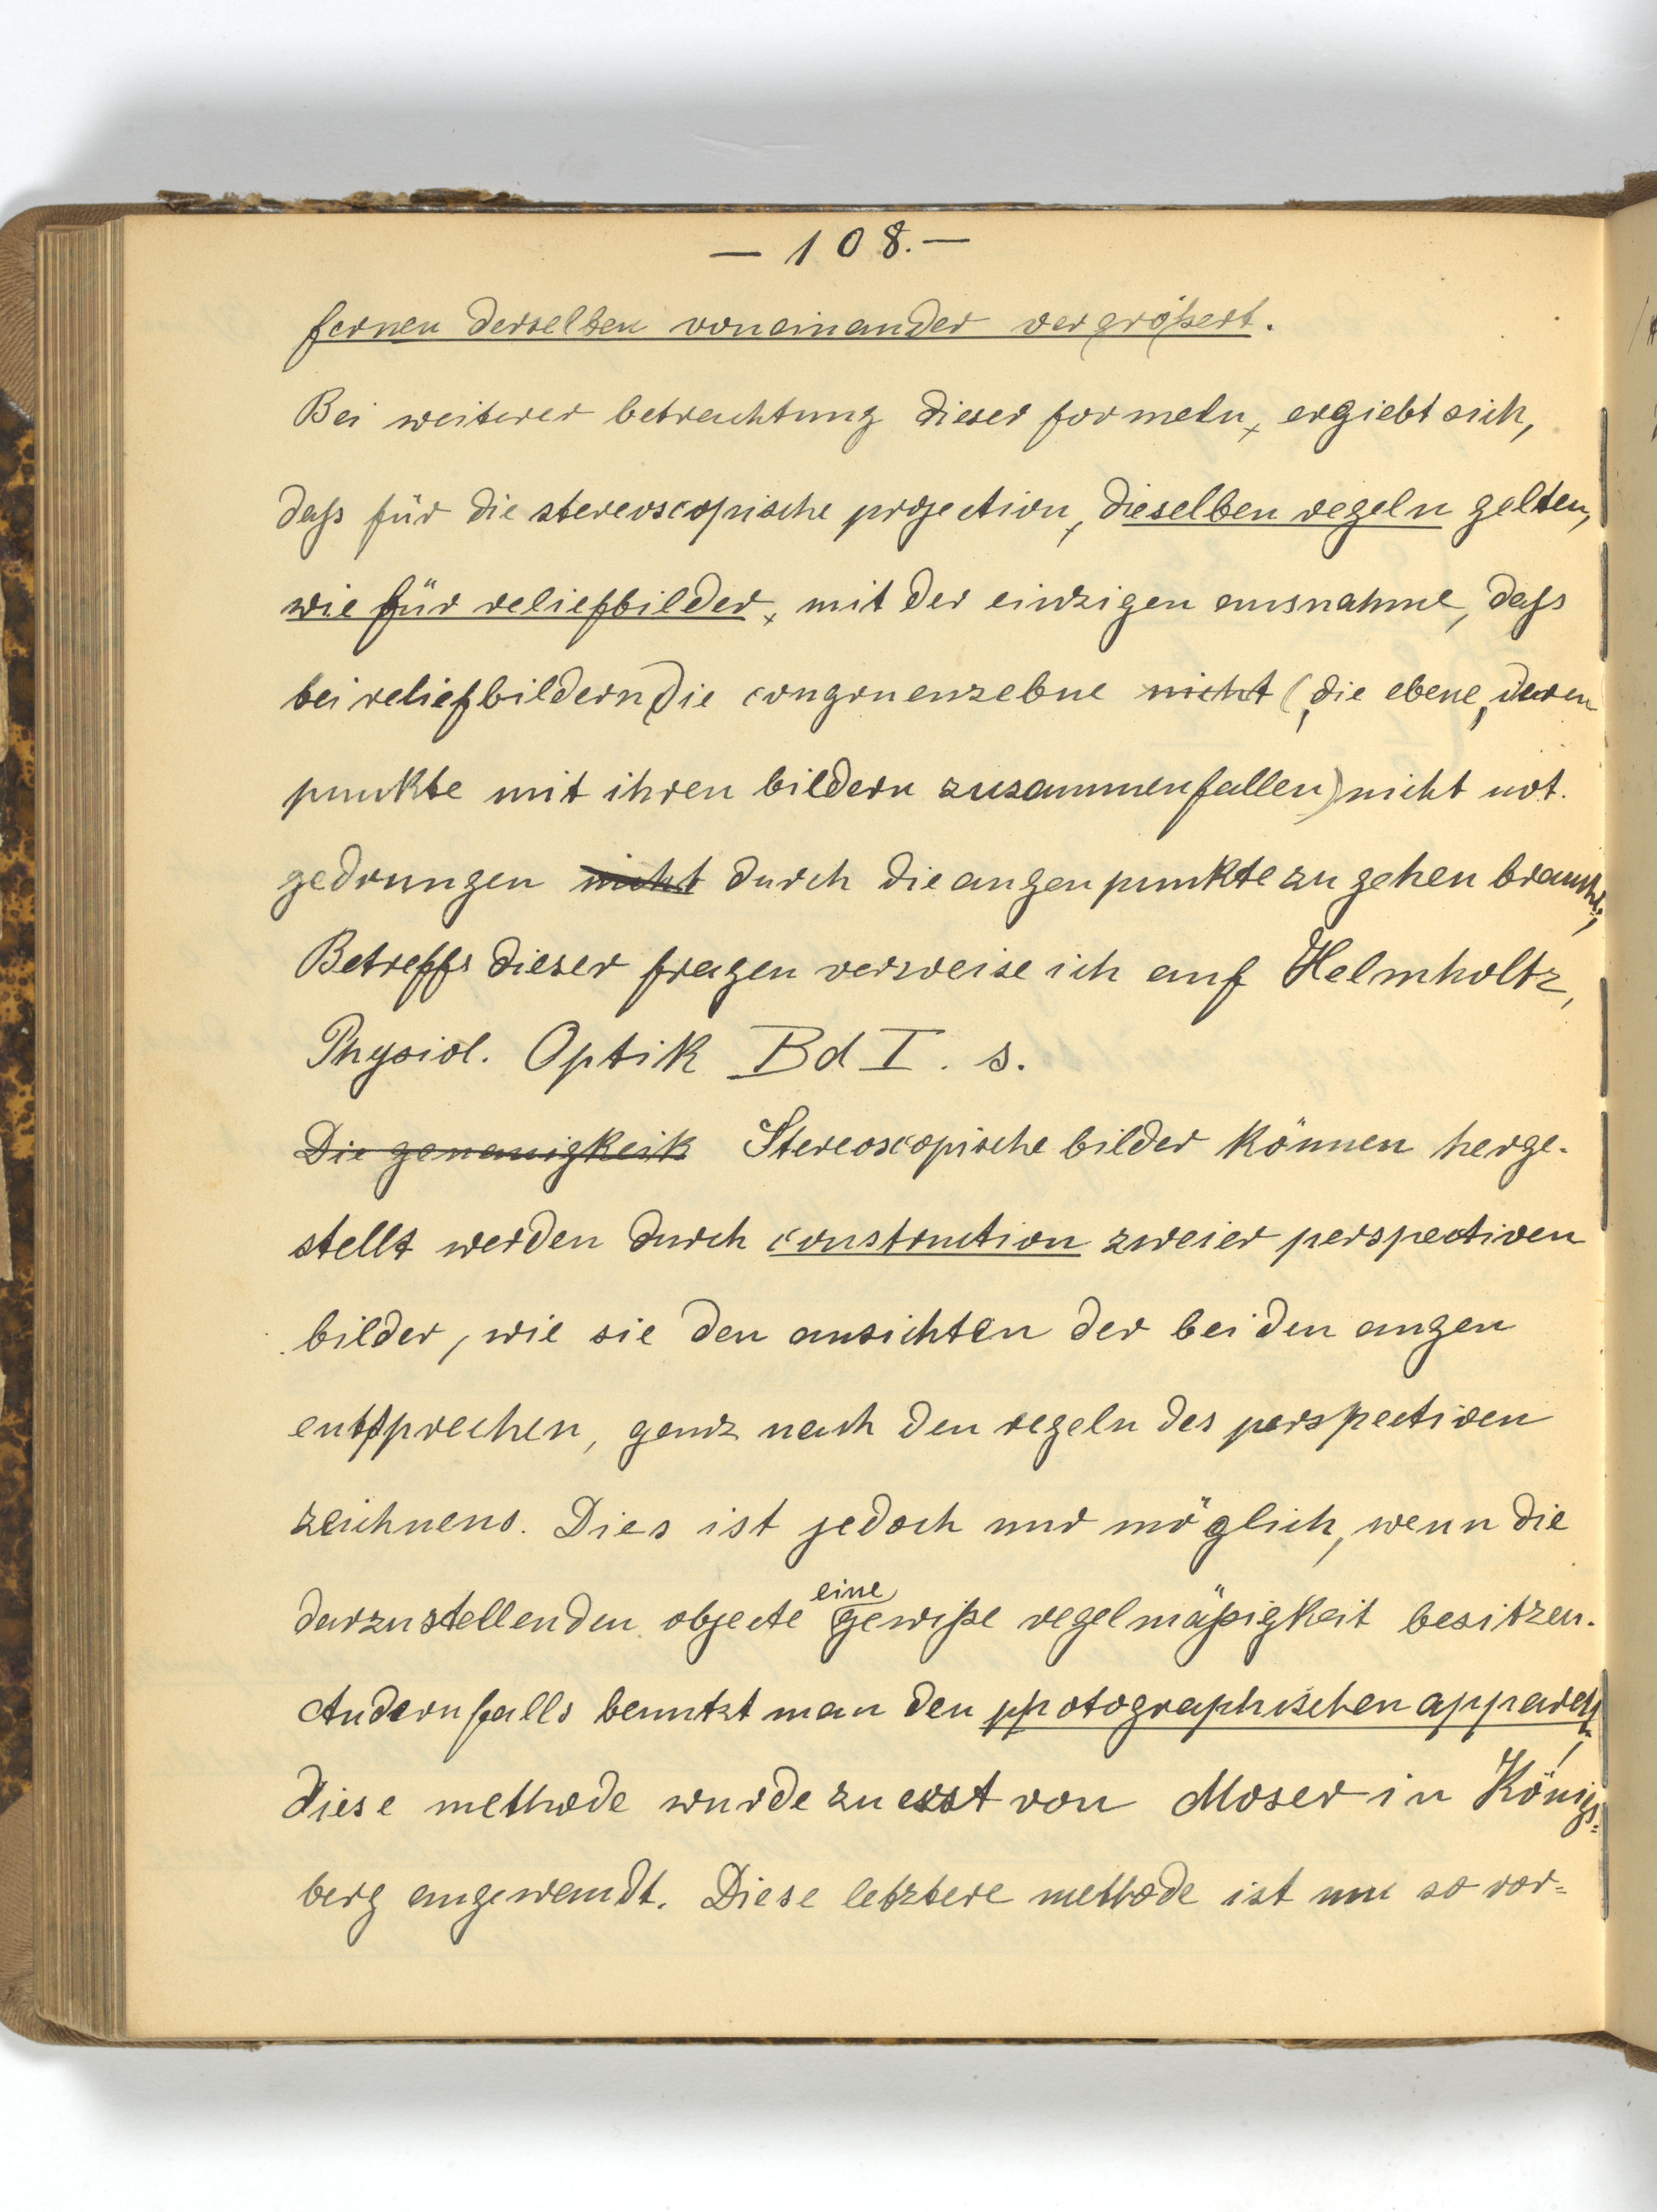 — 108. —
fernen derselben voneinander vergrößert.
Bei weiterer betrachtung dieser formeln, ergiebt sich,
daß für die stereoscopische projection, dieselben regeln gelten,
wie für reliefbilder, mit der einzigen ausnahme, daß
bei reliefbildern die congruenzebne nicht (die ebene, deren
punkte mit ihren bildern zusammenfallen) nicht not-
gedrungen nicht durch die augenpunkte zu gehen braucht;
Betreffs dieser fragen verweise ich auf Helmholtz,
Physiol. Optik Bd I. s.
Die genauigkeit Stereoscopische bilder können herge-
stellt werden durch construction zweier perspectiven
bilder, wie sie den ansichten der beiden augen
entsprechen, ganz nach den regeln des perspectiven
zeichnens. Dies ist jedoch nur möglich, wenn die
darzustellenden objecte eine gewiße regelmäßigkeit besitzen.
Andernfalls benutzt man den photographischen apparat,
diese methode wurde zuerst von Moser in Königs=
berg angewandt. Diese letztere methode ist um so vor=